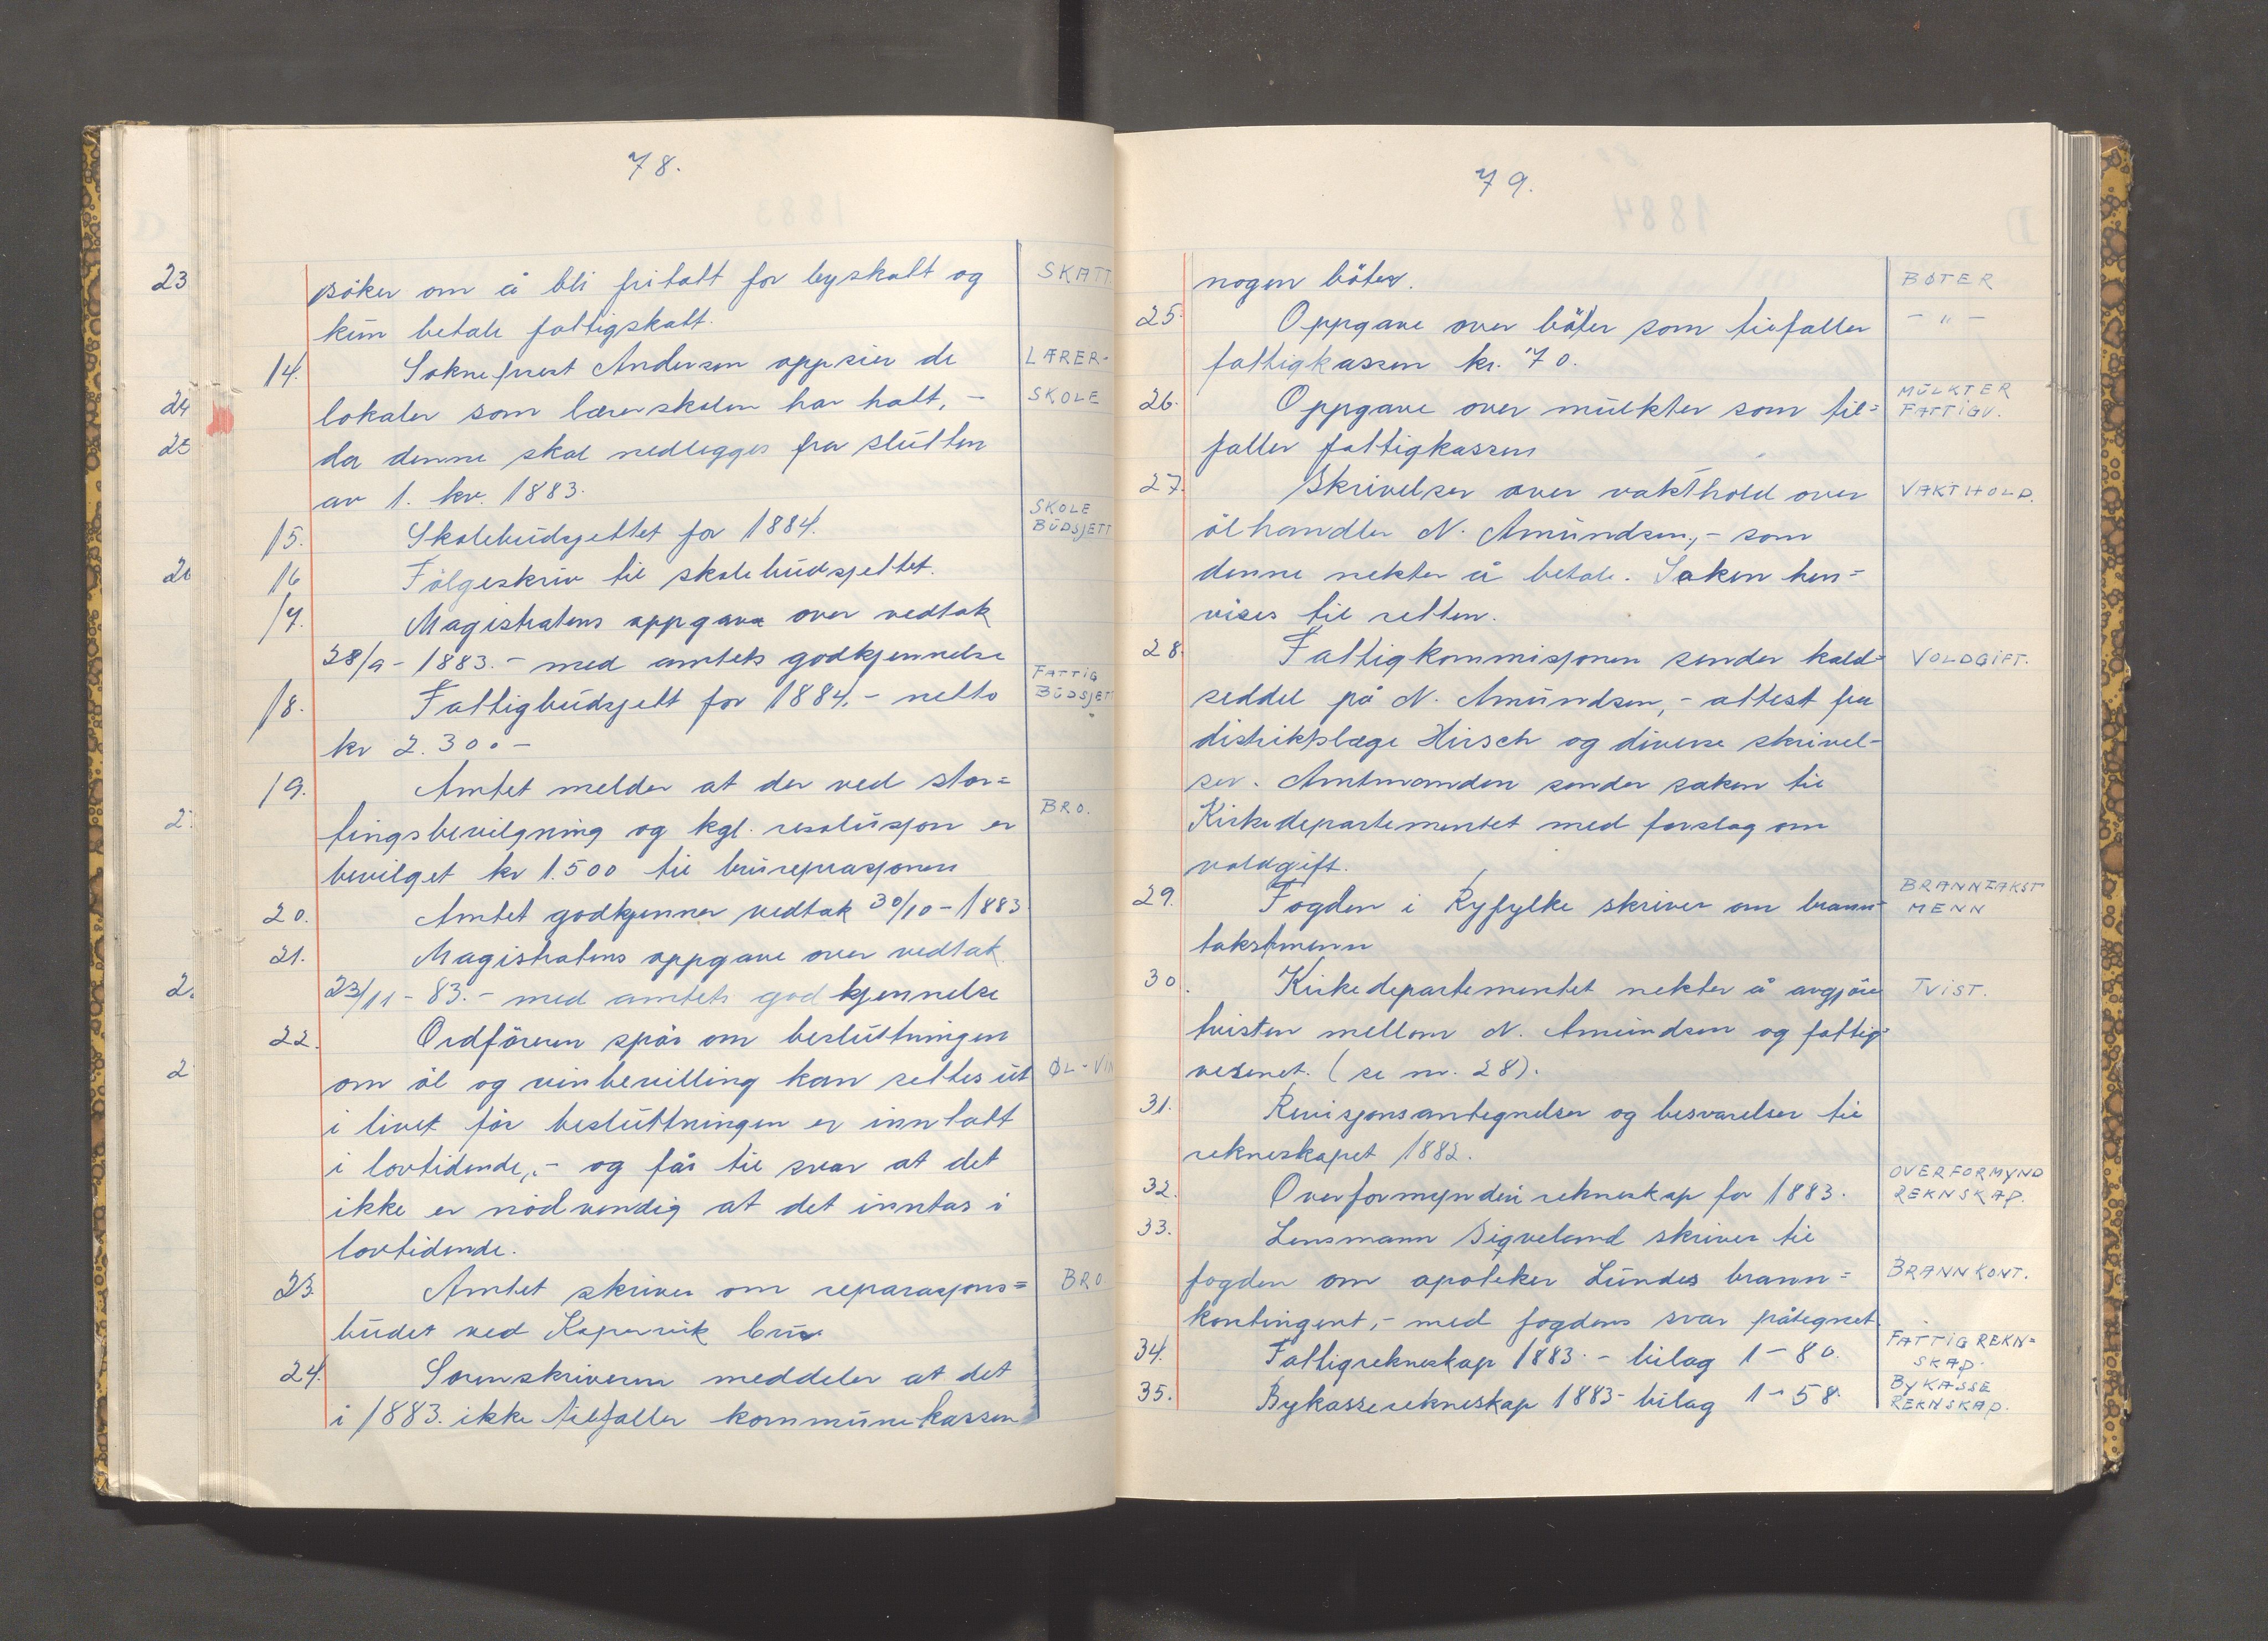 78.
søker om å bli fritatt for byskatt og SKATT.
kun betale fattigskatt.
14. Sokneprest Andersen oppsier de LÆRER-
lokaler som lærerskolen har hatt, - SKOLE
da denne skal nedlegges fra slutten
av 1. kv. 1883.
15. Skolebudsjettet for 1884. SKOLE BUDSJETT
16 Følgeskriv til skolebudsjettet.
17. Magistratens oppgave over vedtak
28/9 - 1883. - med amtets godkjennelse
18. Fattigbudsjett for 1884. - netto FATTIG BUDSJETT
kr 2.300 -
19. Amtet melder at der ved stor=
tingsbevilgning og kgl. resolusjon er BRO.
bevilget kr 1.500 til brureprasjonen
20. Amtet godkjenner vedtak 30/10 - 1883
21. Magistratens oppgave over vedtak
23/11 - 83. - med amtets godkjennelse
22. Ordføreren spør om besluttningen
om øl og vinbevilling kan settes ut ØL - VIN
i livet før besluttningen er inntatt
i lovtidende, - og får til svar at det
ikke er nødvendig at det inntas i
lovtidende.
23. Amtet skriver om reparasjons= BRO
budet ved Kopervik bru
24. Sorenskriveren meddeler at det
i 1883. ikke tilfaller kommunekassen
79.
nogen bøter. BØTER
25. Oppgave over bøter som tilfaller - " -
fattigkassen kr. 70.
26. Oppgave over mulkter som til= MULKTER FATTIGV.
faller fattigkassen
27. Skrivelser over vakthold over VAKTHOLD.
ølhandler N. Amundsen, - som
denne nekter å betale. Saken hen=
vises til retten.
28. Fattigkommisjonen sender kald= VOLDGIFT.
seddel på N. Amundsen, - attest fra
distriktslæge Hirsch og diverse skrivel-
ser. Amtmanden sender saken til
Kirkedepartementet med forslag om
voldgift.
29. Fogden i Ryfylke skriver om brann- BRANNTAKST MENN
takstmenn
30. Kirkedepartementet nekter å avgjøre TVIST.
tvisten mellom N. Amundsen og fattig=
vesenet. (se nr. 28).
31. Revisjonsantegnelser og besvarelser til
rekneskapet 1882.
32. Overformynderirekneskap for 1883. OVERFORMYND REKNSKAP.
33. Lensmann Sigveland skriver til
fogden om apoteker Lundes brann= BRANNKONT.
kontingent, - med fogdens svar påtegnet.
34. Fattigrekneskap 1883. - bilag 1 - 80. FATTIGREKN= SKAP.
35. Bykasserekneskap 1883 - bilag 1 - 58. BYKASSE REKNSKAP.